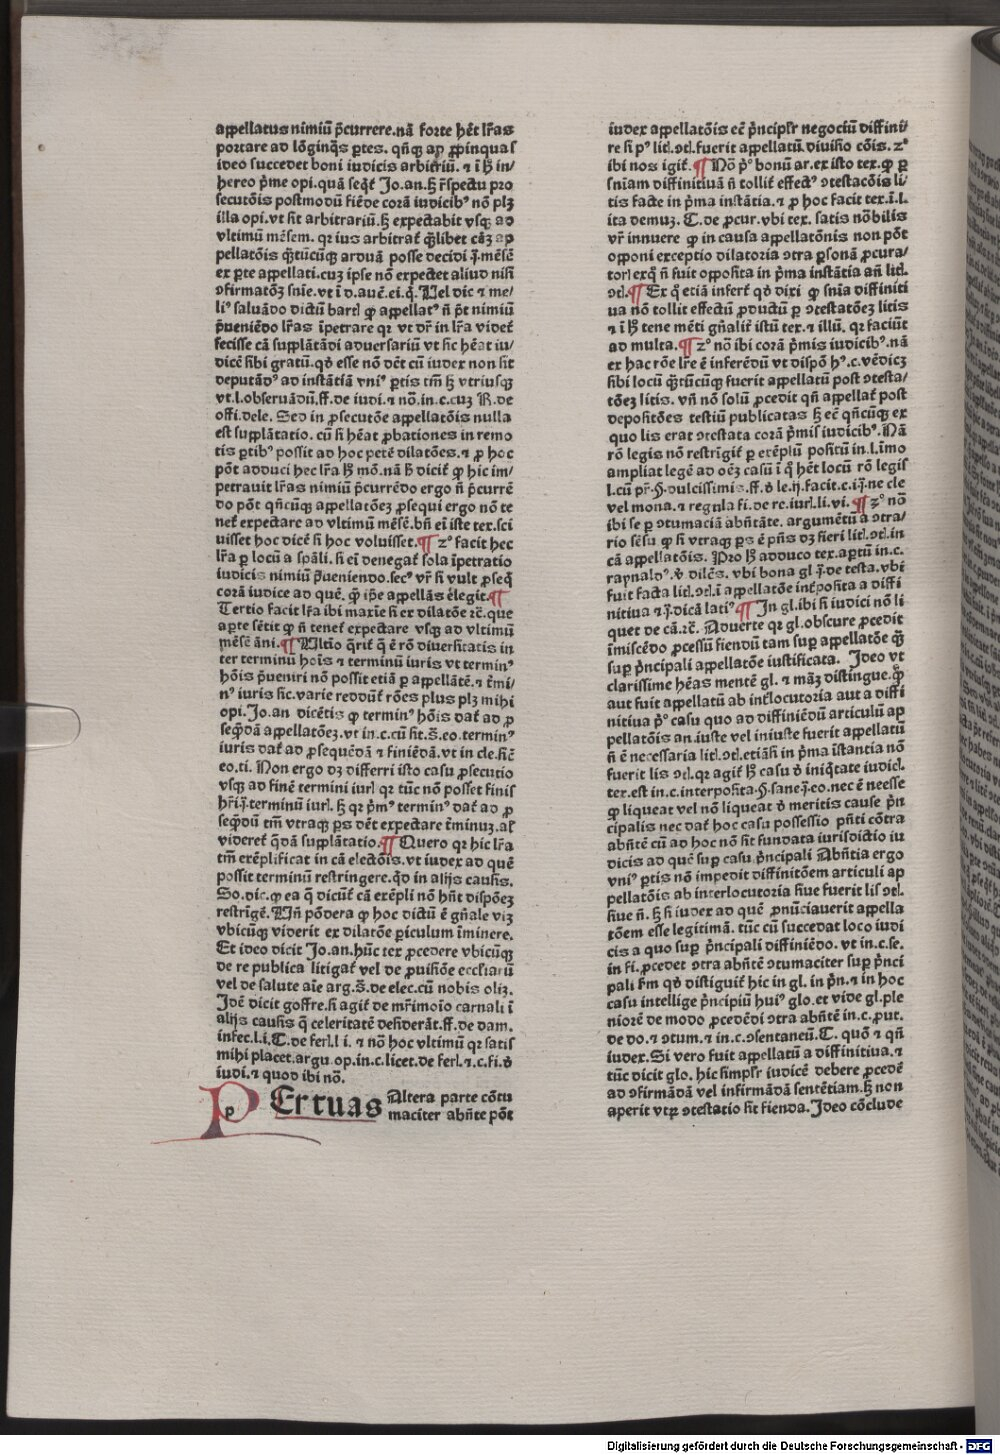 appellatus nimiū p̄currere.nā forte hēt lr̄as
portare ad lōginq̄s ꝑtes. qñq̨ ap ꝓpinquas
ideo succedet boni iudicis arbitriū. ⁊ ī hͦ in/
hereo pͥme opi. quā seqͥt Jo.an.hͦ rn̄spectu pro
secutōis postmodū fiēde corā iudicibꝰ nō plꝫ
illa opi. vt sit arbitrariū.hͦ expectabit vsqꝫ ad
vltimū mēsem. qꝛ ius arbitrat̄ q̄libet cāꝫ ap
pellatōis q̄tūcūqꝫ arduā posse decidi ī.mēse
ex ꝑte appellati.cuꝫ ipse nō expectet aliud nisi
ↄfirmatōꝫ snīe.vt ī d.auē.ei.q̄. Uel dic ⁊ me/
liꝰ saluādo dictū bart̄ ꝙ appellatꝰ n̄ pōt nimiū
p̄ueniēdo lr̄as īpetrare qꝛ vt dr̄ in lr̄a videt̄
fecisse cā supplātādi aduersariū vt sic hēat iu/
dicē sibi gratū.qd̄ esse nō dēt cū iudex non sit
deputādꝰ ad instātiā vniꝰ ꝑtis tm̄ hͦ vtriusqꝫ
vt.l.obseruādū.ff.de iudi.⁊ nō.in.c.cuꝫ R.de
offi.dele. Sed in ꝓsecutōe appellatōis nulla
est supplātatio. cū si hēat ꝓbationes in remo
tis ꝑtibꝰ possit ad hoc petē dilatōes.⁊ ꝓ hoc
pōt adduci hec lr̄a hͦ mō.nā hͦ dicit̄ ꝙ hic im/
petrauit lr̄as nimiū p̄currēdo ergo n̄ p̄currē
do pōt qñcūqꝫ appellatōeꝫ ꝓsequi ergo nō te
net̄ expectare ad vltimū mēsē.bn̄ eī iste tex.sci
uisset hoc dicē si hoc voluisset.¶ zͦ facit hec
lr̄a ꝑ locū a spāli. si eī denegat̄ sola īpetratio
iudicis nimiū p̄ueniendo.secꝰ vr̄ si vult ꝓseq̄
corā iudice ad quē. q̄ ip̄e appellās elegit.¶
Tertio facit lr̄a ibi maxīe si ex dilatōe ⁊c̄.que
aꝑte sētit ꝙ n̄ tenet̄ expectare vsqꝫ ad vltimū
mēsē āni.¶ Ultīo q̄rit̄ q̄ ē rō diuersitatis in
ter terminū hoīs ⁊ terminū iuris vt terminꝰ
hōis p̄ueniri nō possit etiā ꝑ appellātē.⁊ t̄mi/
nꝰ iuris sic.varie reddūt̄ rōes plus plꝫ mihi
opi.Jo.an dicētis ꝙ terminꝰ hōis dat̄ ad ꝓ
seq̄dā appellatōeꝫ.vt in.c.cū sit.s̄.eo.terminꝰ
iuris dat̄ ad ꝓsequēdā ⁊ finiēdā.vt in cle.sicē
eo.ti. Non ergo dꝫ differri isto casu ꝓsecutio
vsqꝫ ad finē termini iurl qꝛ tūc nō posset finis
hr̄i.ī.terminū iurl. hͦ qꝛ pͥmꝰ terminꝰ dat̄ ad ꝓ
seq̄dū tm̄ vtraqꝫ ꝑs dēt expectare t̄minuꝫ.al̄
videret̄ q̄dā supplātatio.¶ Quero qꝛ hic lr̄a
tm̄ exēplificat in cā electōis.vt iudex ad quē
possit terminū restringere.qd̄ in alijs causis.
So.dic.ꝙ ea q̄ dicūt̄ cā exēpli nō hn̄t dispōeꝫ
restrīgē. Un̄ pōdera ꝙ hoc dictū ē gn̄ale viꝫ
vbicūqꝫ viderit ex dilatōe ꝑiculum īminere.
Et ideo dicit Jo.an.hūc tex ꝓcedere vbicūqꝫ
de re publica litigat̄ vel de ꝓuisiōe eccliarū
vel de salute aīe arg.s̄.de elec.cū nobis oliꝫ.
Jdē dicit goffre.si agit̄ de mr̄imoīo carnali ī
alijs causis q̄ celeritatē desiderāt.ff.de dam.
infec.l.i.C.de feri.l i. ⁊ nō hoc vltimū qꝛ satis
mihi placet.argu.op.in.c.licet.de feri.⁊.c.fi.d̄
iudi.⁊ quod ibi nō.
PErtuas Altera parte cōtu
maciter abn̄te pōt
iudex appellatōis eē p̄ncipl̄r negociū diffini/
re si pͥꝰ lit̄.ↄt̄.fuerit appellatū.diuisio cōis. zͦ
ibi nos igit̄.¶ Nō pͦ bonū ar.ex isto tex.ꝙ ꝑ
sn̄iam diffinitiuā n̄ tollit̄ effectꝰ ↄtestacōis li/
tis facte in pͥma instātia.⁊ ꝓ hoc facit tex.ī.l.
ita demuꝫ. C. de ꝓcur.vbi tex. satis nōbilis
vr̄ innuere ꝙ in causa appellatōnis non pōt
opponi exceptio dilatoria ↄtra ꝑsonā ꝓcura/
torl exq̄ n̄ fuit opposita in pͥma instātia an̄ lit̄.
ↄt̄.¶ Ex q̄ etiā infert̄ qd̄ dixi ꝙ sn̄ia diffiniti
ua nō tollit effectū ꝓductū ꝑ ↄtestatōeꝫ litis
⁊ ī hͦ tene mēti gn̄alit̄ istū tex.⁊ illū. qꝛ faciūt
ad multa.¶ zͦ nō ibi corā pͥmis iudicibꝰ.nā
ex hac rōe lr̄e ē inferēdū vt dispō hꝰ.c.vēdicꝫ
sibi locū q̄tūcūqꝫ fuerit appellatū post ↄtesta/
tōeꝫ litis. vn̄ nō solū ꝓcedit qn̄ appellat̄ post
depositōes testiū publicatas hͦ eē qn̄cūqꝫ ex
quo lis erat ↄtestata corā pͥmis iudicibꝰ. Nā
rō legis nō restrīgit̄ ꝑ exēplū positū in.l.īmo
ampliat legē ad oēꝫ casū ī q̄ hēt locū rō legis
l.cū pr̄.§.dulcissimis.ff.d̄ le.ij.facit.c.i.ne cle
vel mona.⁊ regula fi.de re.iurl.li.vi.¶ ꝫͦ nō
ibi se ꝑ ↄtumaciā abn̄tāte. argumētū a ↄtra/
rio sēsu ꝙ si vtraqꝫ ꝑs ē pn̄s dꝫ fieri lit̄.ↄt̄.in
cā appellatōis. Pro hͦ adduco tex.aꝑtū in.c.
raynaldꝰ.d̄ dilc̄s. vbi bona gl ī.de testa.vbi
fuit facta lit̄.ↄt̄.ī appellatōe int̄posita a diffi
nitiua ⁊ ī.dicā latiꝰ ¶ Jn gl.ibi si iudici nō li
quet de cā.⁊c̄. Aduerte qꝛ gl.obscure ꝓcedit
īmiscēdo ꝓcessū fiendū tam suꝑ appellatōe q̄
suꝑ p̄ncipali appellatōe iustificata. Jdeo vt
clarissime hēas mentē gl.⁊ māꝫ distingue.q̄
aut fuit appellatū ab int̄locutoria aut a diffi
nitiua pͦ casu quo ad diffiniēdū articulū ap
pellatōis an.iuste vel iniuste fuerit appellatū
n̄ ē necessaria lit̄.ↄt̄.etiāsi in pͥma īstantia nō
fuerit lis ↄt̄.qꝛ agit̄ hͦ casu d̄ iniq̄tate iudicl.
tex.est in.c.interposita.§.sane.ī.eo.nec ē neesse
ꝙ liqueat vel nō liqueat d̄ meritis cause p̄n
cipalis nec dat̄ hoc casu possessio pn̄ti cōtra
abn̄tē cū ad hoc nō sit fundata iurisdictio iu
dicis ad quē suꝑ casu p̄ncipali Abn̄tia ergo
vniꝰ ꝑtis nō impedit diffinitōem articuli ap
pellatōis ab interlocutoria siue fuerit lis ↄt̄.
siue n̄. hͦ si iudex ad quē ꝓnūciauerit appella
tōem esse legitimā. tūc cū succedat loco iudi
cis a quo suꝑ p̄ncipali diffiniēdo. vt in.c.se.
in fi.ꝓcedet ↄtra abn̄tē ↄtumaciter suꝑ p̄nci
pali fm̄ qd̄ distiguit̄ hic in gl. in pn̄.⁊ in hoc
casu intellige p̄ncipiū huiꝰ glo.et vide gl.ple
niorē de modo ꝓcedēdi ↄtra abn̄tē in.c.ꝓut.
de do.⁊ ↄtum.⁊ in.c.ↄsentaneū.C. quō ⁊ qn̄
iudex. Si vero fuit appellatū a diffinitiua.⁊
tūc dicit glo. hic simpl̄r iudicē debere ꝓcedē
ad ↄfirmādā vel infirmādā sentētiam.hͦ non
aperit vtꝝ ↄtestatio sit fienda. Jdeo cōclude
Digitalisierung gefördert durch die Deutsche Forschungsgemeinschaft - DFG